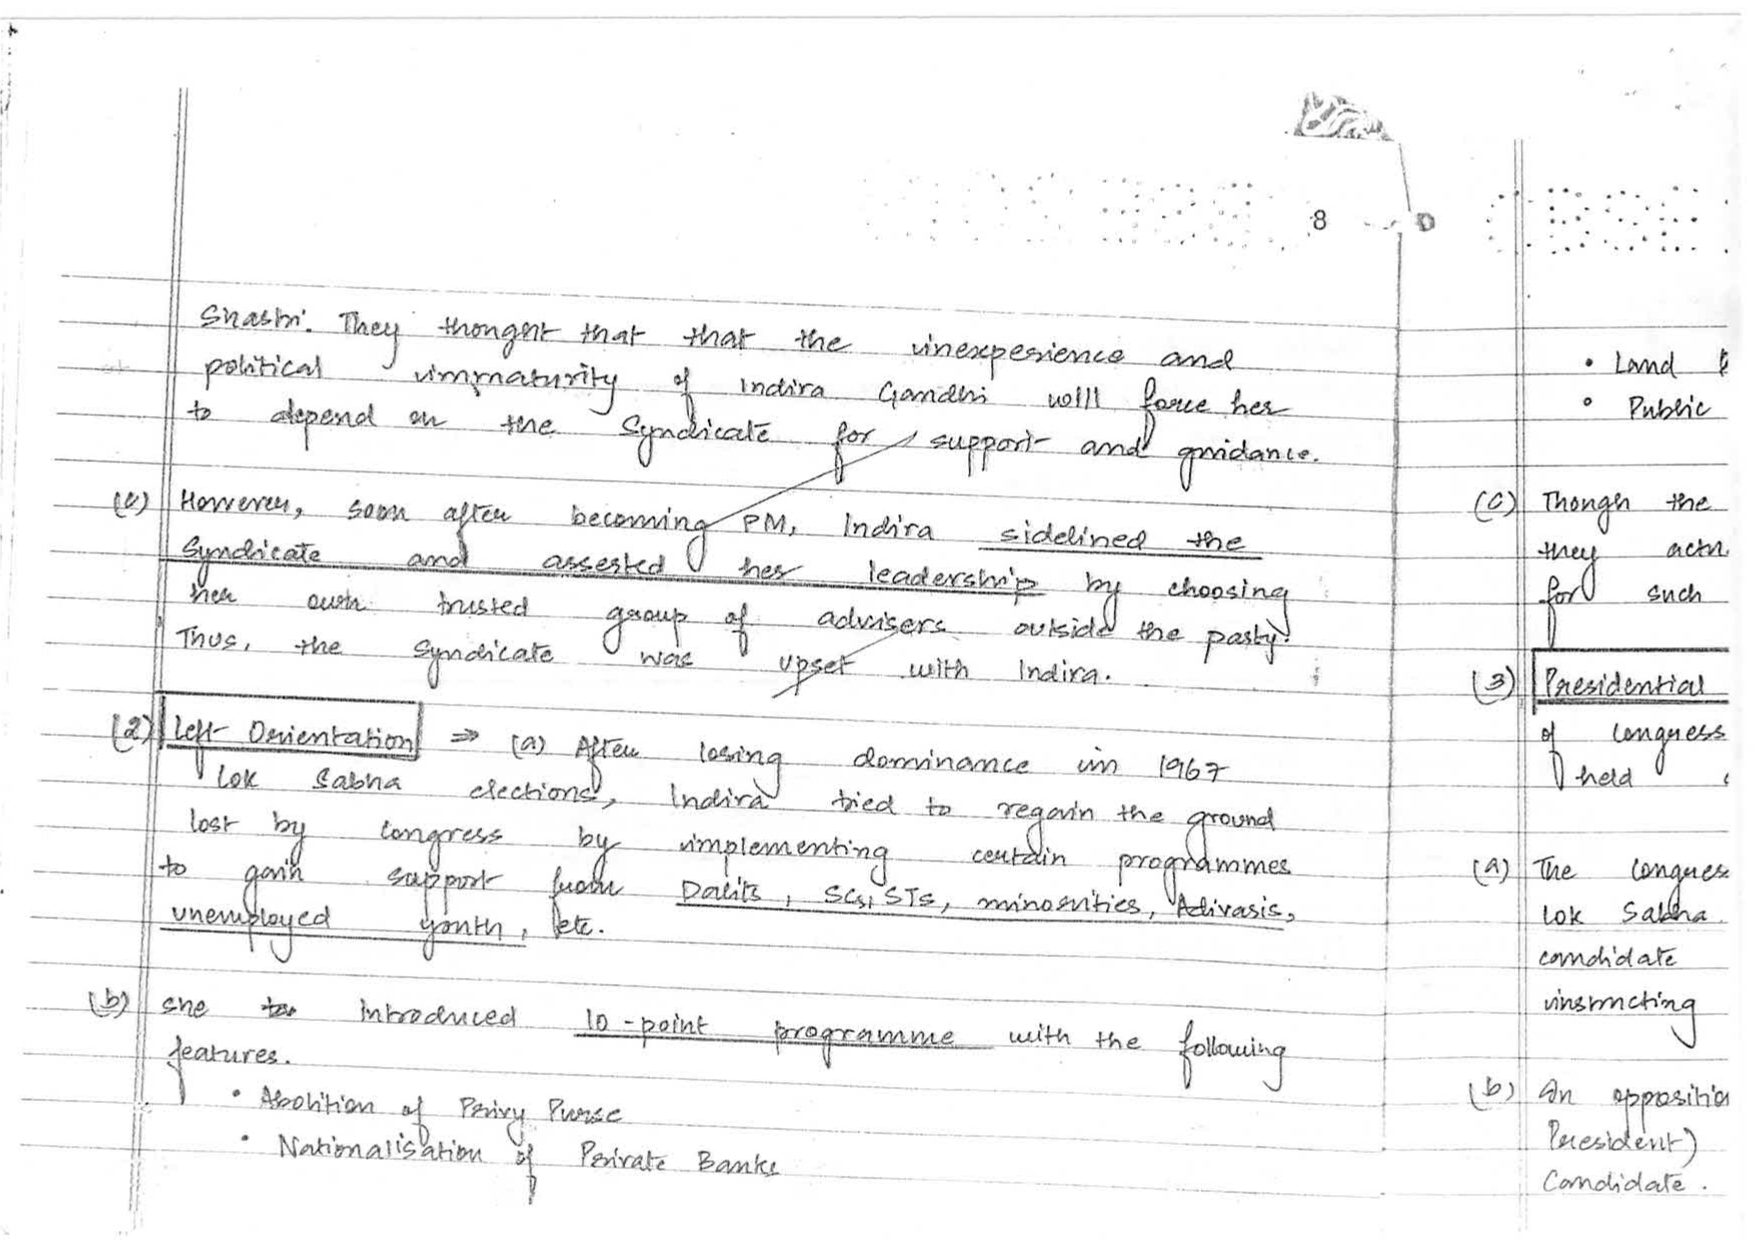 8
Shastri. They thought that that the inexperience and
political immaturity of Indira Gandhi will force her
to depend on the Syndicate for support and guidance.
(c) However, soon after becoming PM, Indira sidelined the
Syndicate and asserted her leadership by choosing
her own trusted group of advisers outside the party.
Thus, the Syndicate was upset with Indira.
(2) Left Orientation ⇒ (a) After losing dominance in 1967
Lok Sabha elections, Indira tried to regain the ground
lost by Congress by implementing certain programmes
to gain support from Dalits, SCs, STs, minorities, Adivasis,
unemployed youth, etc.
(b) She introduced 10-point programme with the following
features.
• Abolition of Privy Purse
• Nationalisation of Private Banks
• Land
• Public
(c) Though the
they
for such
(3) Presidential
of Congress
held
(a) The
Lok Sabha
candidate
instructing
(b) An
President)
Candidate.